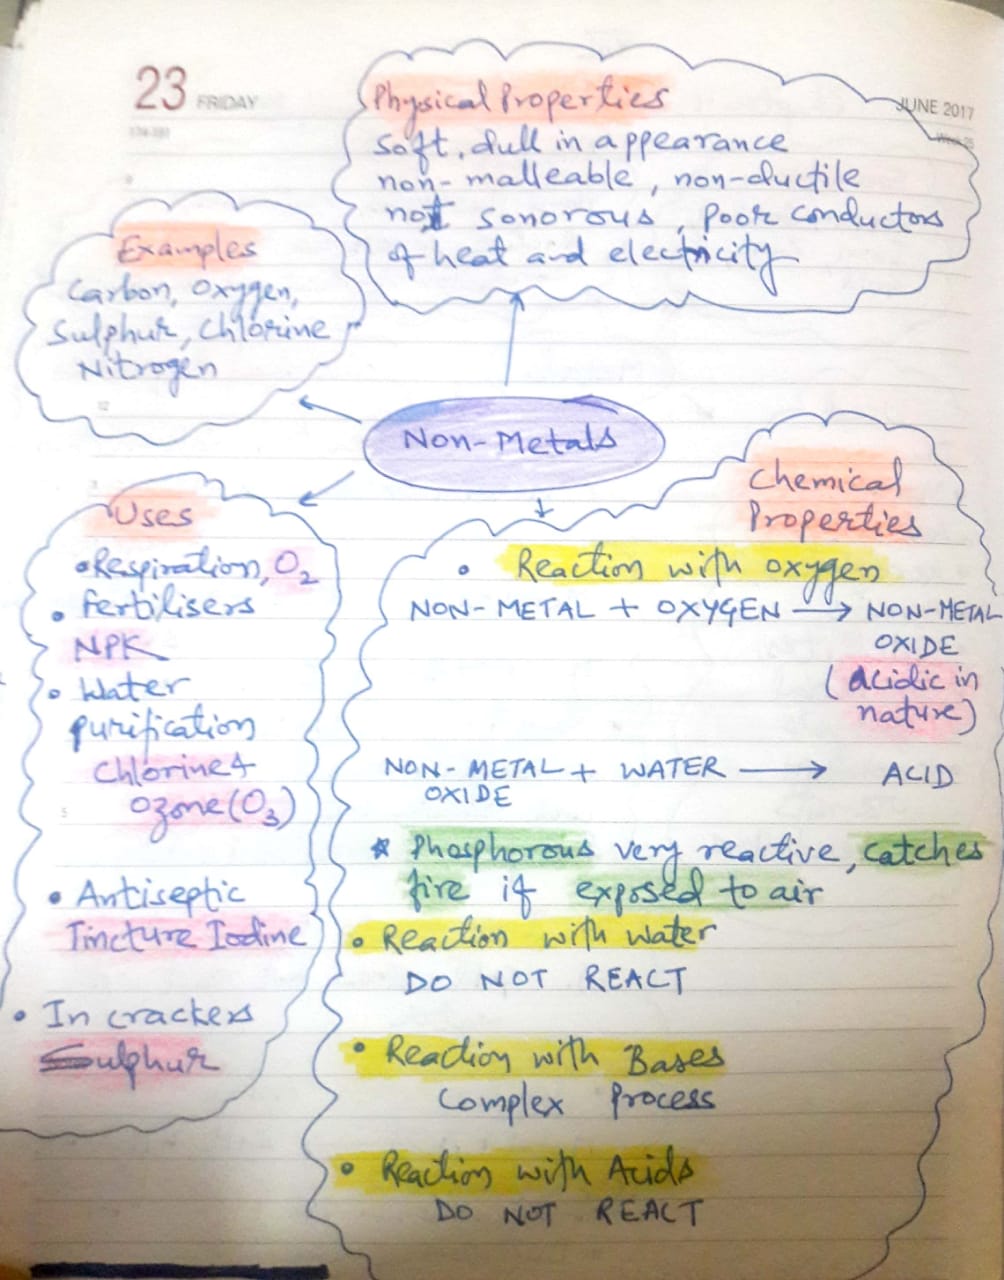 23 FRIDAY
JUNE 2017
Physical Properties
Soft, dull in appearance
non-malleable, non-ductile
not sonorous, poor conductors
of heat and electricity
Examples
Carbon, Oxygen,
Sulphur, Chlorine
Nitrogen
Non-Metals
Uses
• Respiration, O₂
• Fertilisers
NPK
• Water
purification
Chlorine &
Ozone (O₃)
• Antiseptic
Tincture Iodine
• In crackers
Sulphur
Chemical
Properties
• Reaction with oxygen
NON-METAL + OXYGEN ⟶ NON-METAL
OXIDE
(acidic in
nature)
NON-METAL + WATER ⟶ ACID
OXIDE
* Phosphorous very reactive, catches
fire if exposed to air
• Reaction with water
DO NOT REACT
• Reaction with Bases
Complex Process
• Reaction with Acids
DO NOT REACT